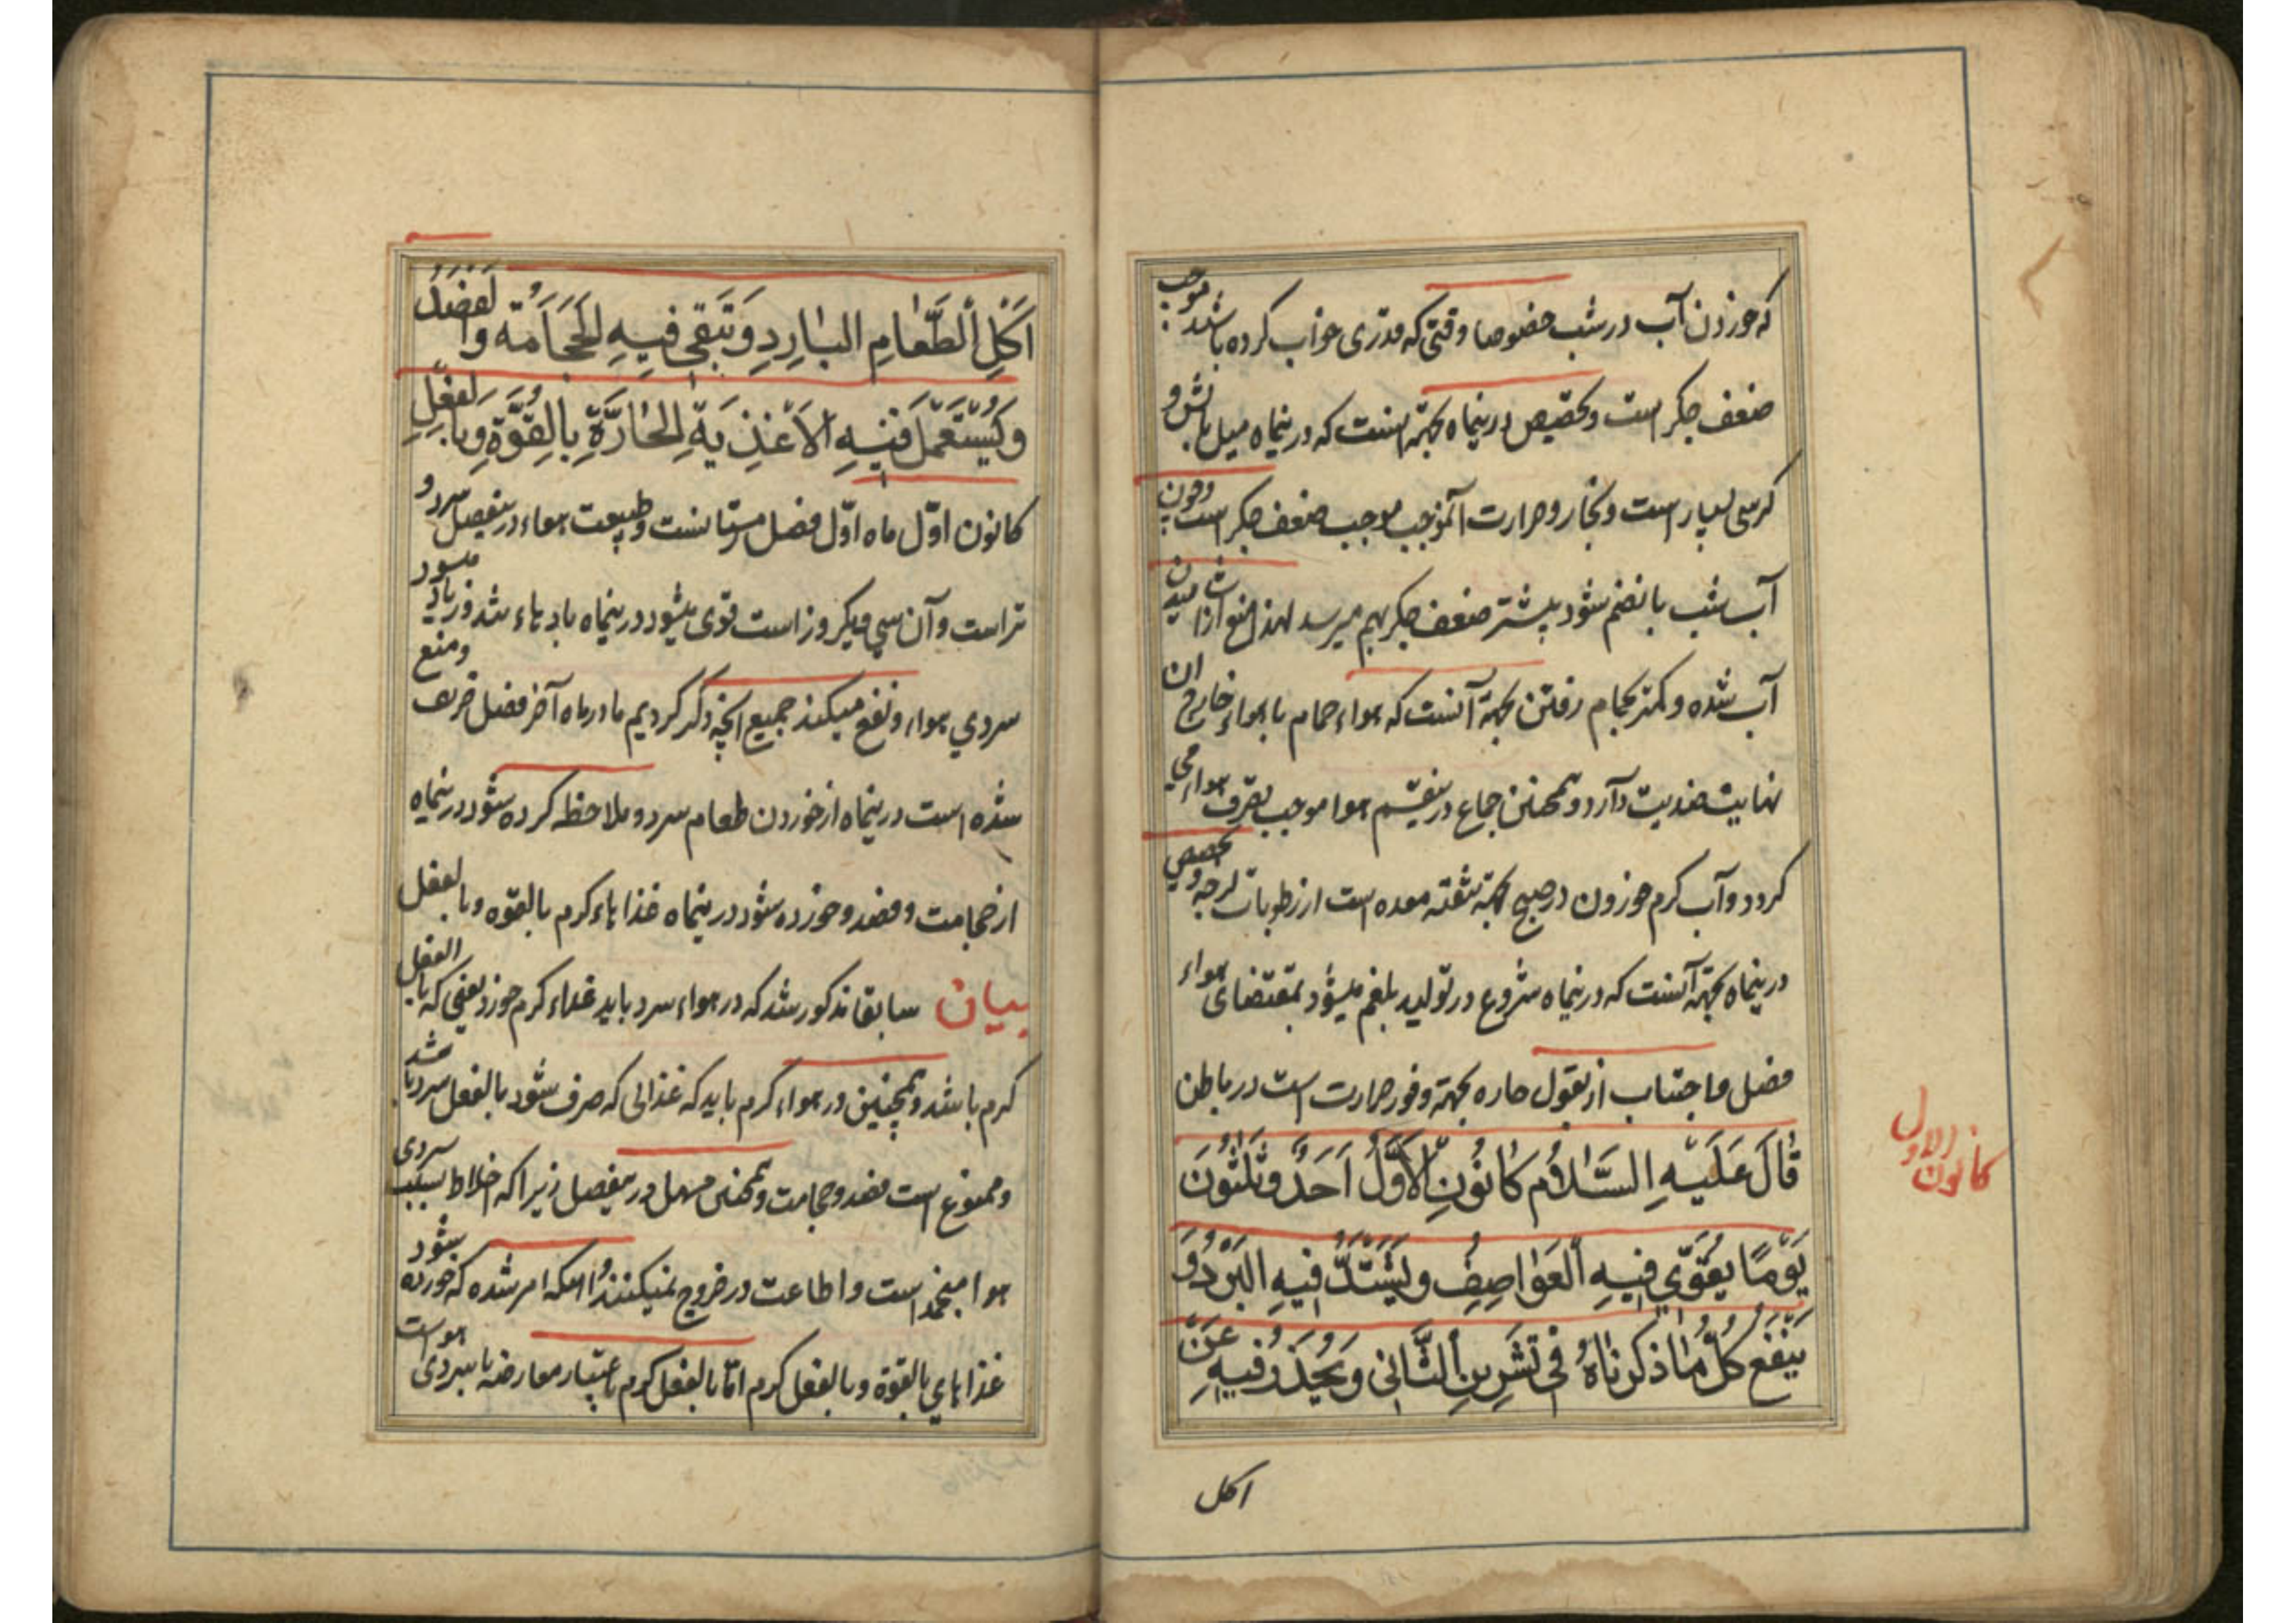 که خوردن آب در شب خصوصا وقتی که قدری خواب کرده باشد موجب
ضعف جگر است و تخصیص درینماه بجهة اینست که درینماه میل بآتش و
کرسی بسیار است و بخار و حرارت آنموجب ضعف جگر است و چون
آب شب بانضم شود بیشتر ضعف جگر بهم میرسد لهذا منع از آشامیدن
آب شده و کمتر بحمام رفتن بجهة آنست که هواء حمام با هواء خارج ان
نهایت ضدیت دارد و همچنین جماع درینقسم هوا موجب تصرف هواء می
کردد و آب کرم خوردن در صبح بجهة تنقیه معده است از رطوبات لزجه و تخصیص
درینماه بجهة آنست که درینماه شروع در تولید بلغم میشود بمقتضای هواء
فصل و اجتناب از بقول حاره بجهة وفور حرارت است در باطن
قَالَ عَلَيْهِ السَّلَامُ كَانُونِ الْأَوَّلُ اَحَدٌ وَثَلٰثُونَ
يَوْمًا يَقْوٰي فِيهِ الْعَوَاصِفُ وَيَشْتَدُّ فِيهِ الْبَرْدُ وَ
يَنْفَعُ كُلُّ مَا ذَكَرْنَاهُ فِى تَشْرِينِ الثَّانِى وَيُحْذَرُ فِيهِ عَنْ
كانون الاول
اكل
اَكْلِ الطَّعَامِ الْبَارِدِ وَتَبْقٰى فِيهِ الْحَجَامَةُ وَالْفَصْدُ
وَيُسْتَعْمَلُ فِيهِ الْاَغْذِيَةِ الْحَارَّةِ بِالْقُوَّةِ وَبِالْفِعْلِ
کانون اوّل ماه اوّل فصل زمستانست و طبیعت هواء درینفصل سرد و
تر است و آن سی و یکروز است قوی میشود درینماه بادهاء تند و زیاد میشود
سردي هواء و نفع میکند جمیع آنچه ذکر کردیم ما در ماه آخر فصل خریف و منع
شده است درینماه از خوردن طعام سرد و ملاحظه کرده شود درینماه
از حجامت و فصد و خورده شود درینماه غذاهاء کرم بالقوه و بالفعل
بیان سابقا مذکور شد که در هواء سرد باید غذاء کرم خورد یعنی که بالفعل
کرم باشد و همچنین در هواء کرم باید که غذائی که صرف شود بالفعل سرد باشد
و ممنوع است فصد و حجامت و همچنین مسهل درینفصل زیرا که اخلاط بسبب سردی
هوا منجمد است و اطاعت در خروج نمیکنند و اینکه امر شده که خورده شود
غذاهاي بالقوة و بالفعل کرم امّا بالفعل کرم باعتبار معارضه با سردی هواست